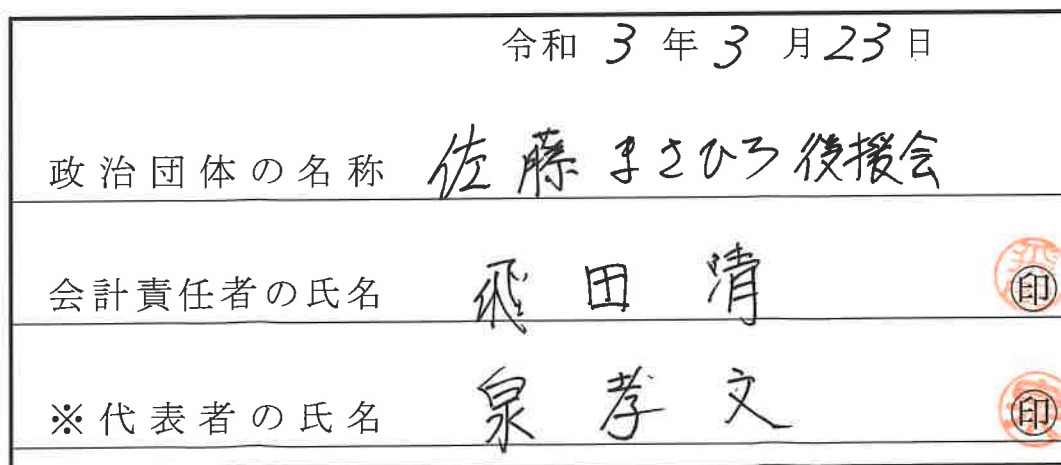 令和 3 年 3 月 23 日
政治団体の名称 佐藤まさひろ後援会
会計責任者の氏名 飛田清 印
※代表者の氏名 泉孝文 印